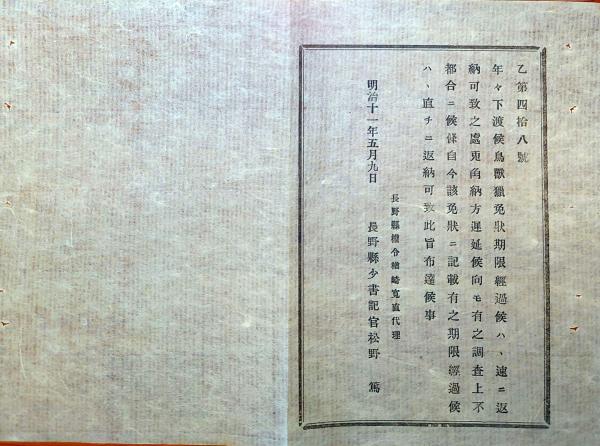 乙第四拾八號
年々下渡候鳥獸獵免狀期限經過候ハヽ速ニ返
納可致之處更ニ納方遲延候向モ有之調査上不
都合ニ候條自今該免狀ニ記載有之期限經過候
ハヽ直チニ返納可致此旨布達候事
明治十一年五月九日
長野縣權令楢崎寛直代理
長野縣少書記官松野篤